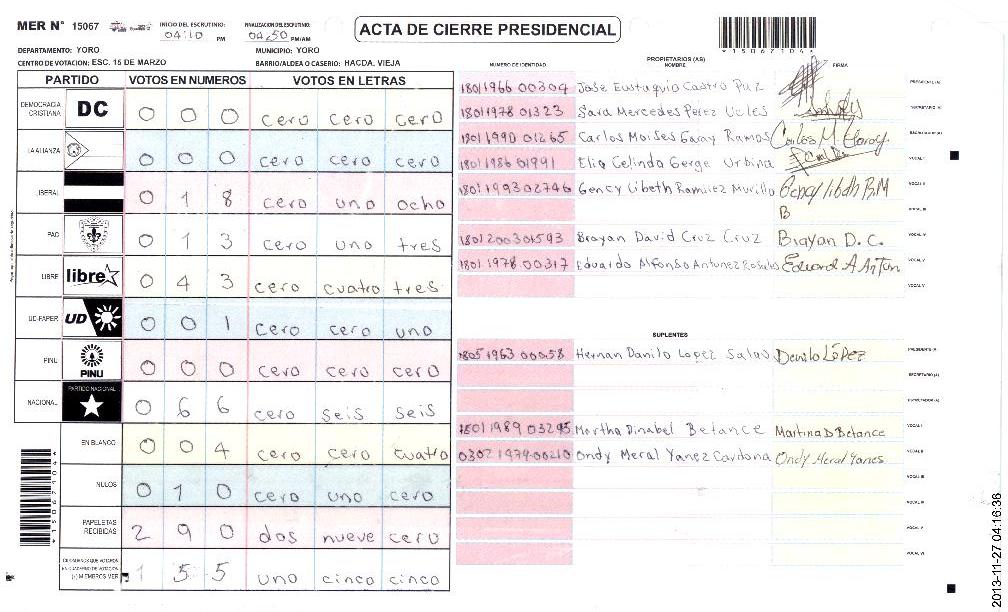 MER N° 15067
INICIO DEL ESCRUTINIO: 04:10 PM
FINALIZACION DEL ESCRUTINIO: 04:50 PM/AM
ACTA DE CIERRE PRESIDENCIAL
*15067104*
DEPARTAMENTO: YORO
MUNICIPIO: YORO
CENTRO DE VOTACION: ESC. 15 DE MARZO
BARRIO/ALDEA O CASERIO: HACDA. VIEJA
PARTIDO VOTOS EN NUMEROS VOTOS EN LETRAS
DEMOCRACIA CRISTIANA DC 0 0 0 cero cero cero
LA ALIANZA 0 0 0 cero cero cero
LIBERAL 0 1 8 cero uno ocho
PAC 0 1 3 cero uno tres
LIBRE libre 0 4 3 cero cuatro tres
UD-FAPER UD 0 0 1 cero cero uno
PINU PINU 0 0 0 cero cero cero
NACIONAL PARTIDO NACIONAL 0 6 6 cero seis seis
EN BLANCO 0 0 4 cero cero cuatro
NULOS 0 1 0 cero uno cero
PAPELETAS RECIBIDAS 2 9 0 dos nueve cero
CIUDADANOS QUE VOTARON EN CUADERNO DE VOTACION (+) MIEMBROS MER 1 5 5 uno cinco cinco
*15067104*
NUMERO DE IDENTIDAD PROPIETARIOS (AS) NOMBRE FIRMA
1801 1966 00304 Jose Eustaquio Castro Paz PRESIDENTE (A)
1801 1978 01323 Sara Mercedes Perez Ucles SECRETARIO (A)
1801 1990 01265 Carlos Moises Garay Ramos Carlos M Garay ESCRUTADOR (A)
1801 1986 01991 Elia Celinda Gerge Urbina VOCAL I
1801 1993 02746 Gency Libeth Ramirez Murillo VOCAL II
VOCAL III
1801 2003 01593 Brayan David Cruz Cruz Brayan D. C. VOCAL IV
1801 1978 00317 Eduardo Alfonso Antunez Rosales VOCAL V
VOCAL VI
SUPLENTES
1805 1963 00058 Hernan Danilo Lopez Salas Danilo López PRESIDENTE (A)
SECRETARIO (A)
ESCRUTADOR (A)
1801 1989 03295 Martha Dinabel Betance Martina D Betance VOCAL I
0302 1979 00210 Ondy Meral Yanez Cardona Ondy Meral Yanes VOCAL II
VOCAL III
VOCAL IV
VOCAL V
VOCAL VI
2013-11-27 04:16:36